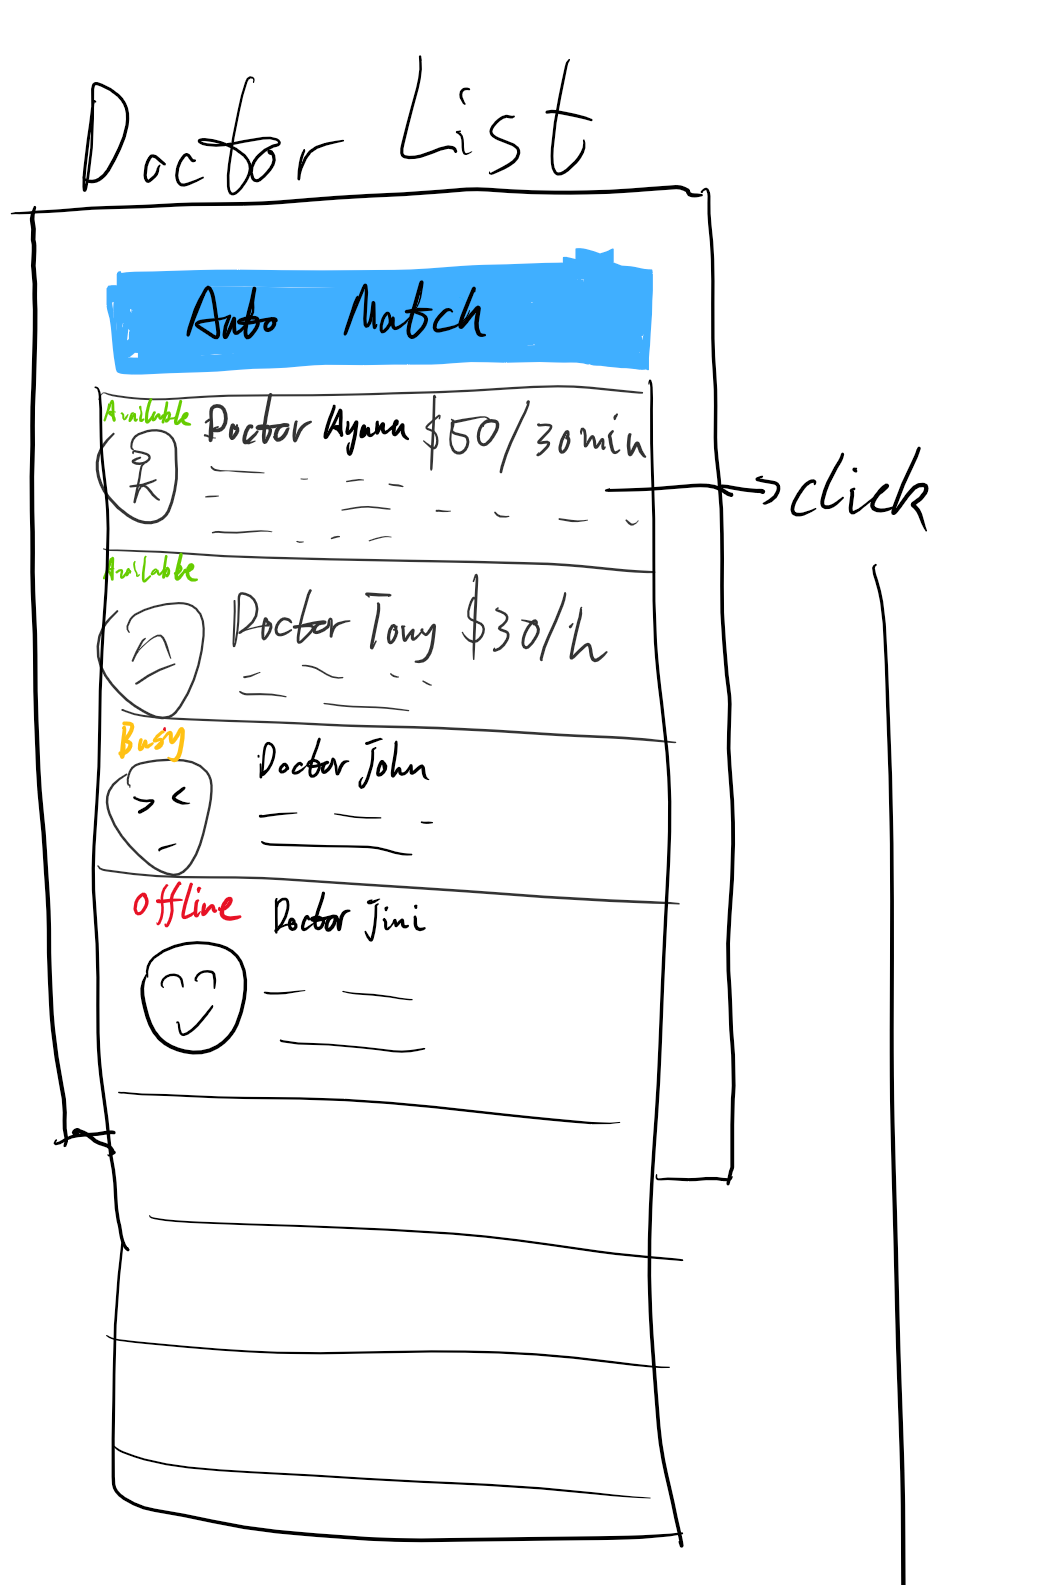 Doctor List
Auto Match
Available
Doctor Ayana $50/30min
click
Available
Doctor Tony $30/h
Busy
Doctor John
Offline
Doctor Jini